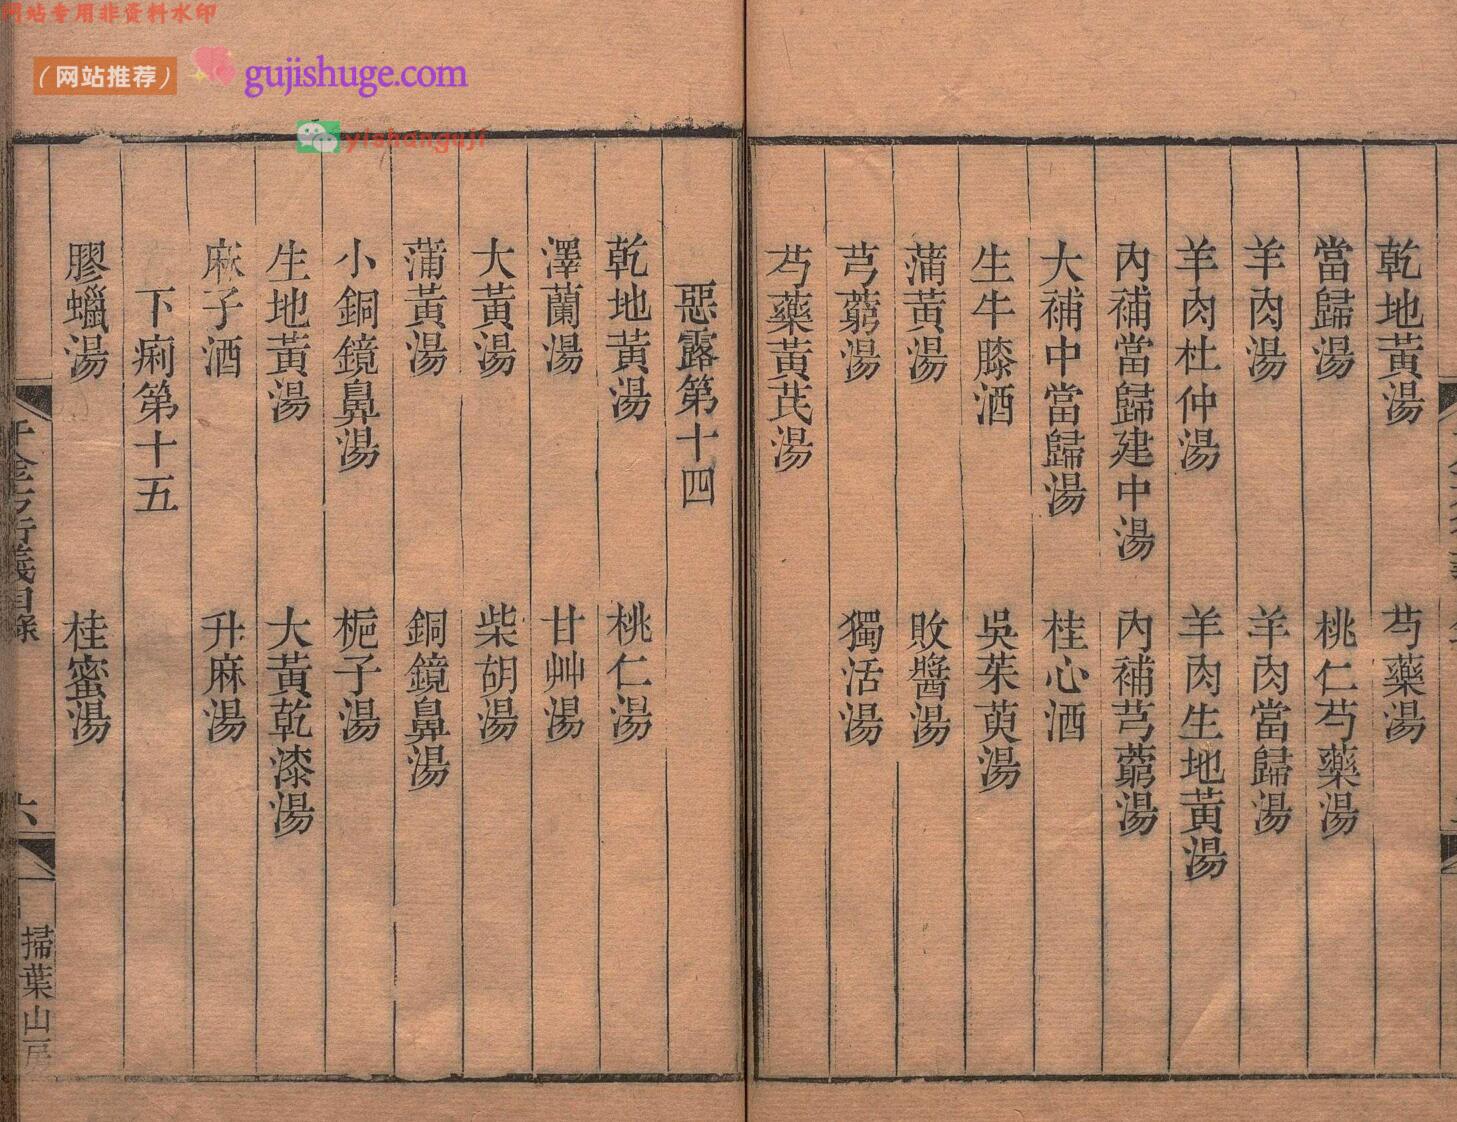 网站专用非资料水印
（网站推荐）
gujishuge.com
yishanguji
乾地黃湯　芍藥湯
當歸湯　桃仁芍藥湯
羊肉湯　羊肉當歸湯
羊肉杜仲湯　羊肉生地黃湯
內補當歸建中湯　內補芎藭湯
大補中當歸湯　桂心酒
生牛膝酒　吳茱萸湯
蒲黃湯　敗醬湯
芎藭湯　獨活湯
芍藥黃芪湯
惡露第十四
乾地黃湯　桃仁湯
澤蘭湯　甘艸湯
大黃湯　柴胡湯
蒲黃湯　銅鏡鼻湯
小銅鏡鼻湯　梔子湯
生地黃湯　大黃乾漆湯
麻子酒　升麻湯
下痢第十五
膠蠟湯　桂蜜湯
千金方衍義目錄　六　掃葉山房